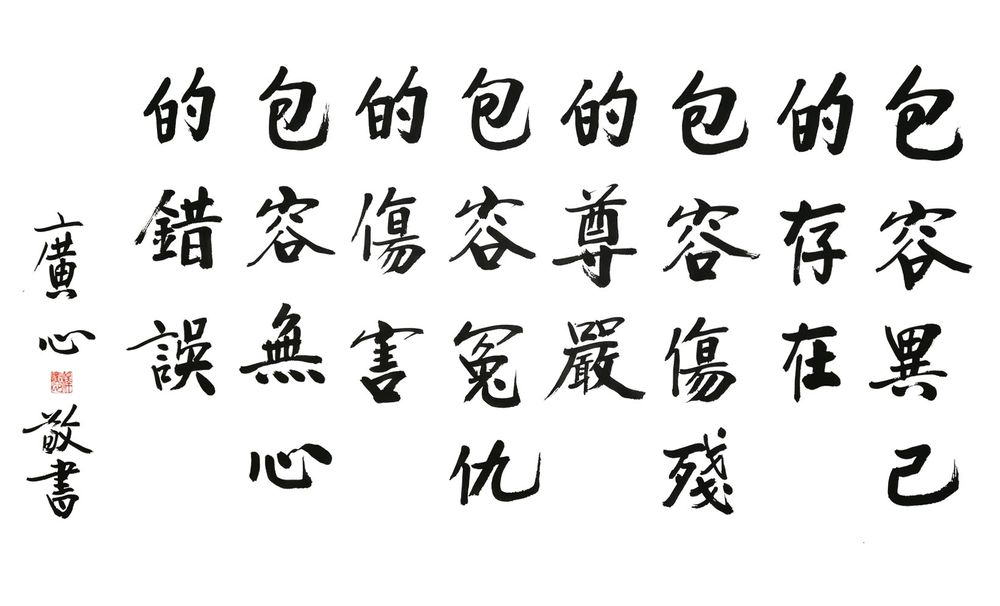 包容異己
的存在
包容傷殘
的尊嚴
包容冤仇
的傷害
包容無心
的錯誤
廣心敬書